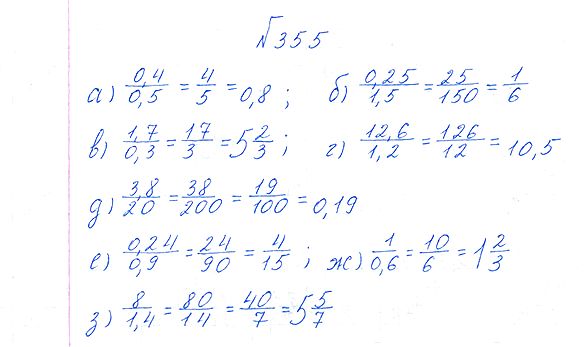 №355
а) 0,4/0,5 = 4/5 = 0,8 ; б) 0,25/1,5 = 25/150 = 1/6
в) 1,7/0,3 = 17/3 = 5 2/3 ; г) 12,6/1,2 = 126/12 = 10,5
д) 3,8/20 = 38/200 = 19/100 = 0,19
е) 0,24/0,9 = 24/90 = 4/15 ; ж) 1/0,6 = 10/6 = 1 2/3
з) 8/1,4 = 80/14 = 40/7 = 5 5/7